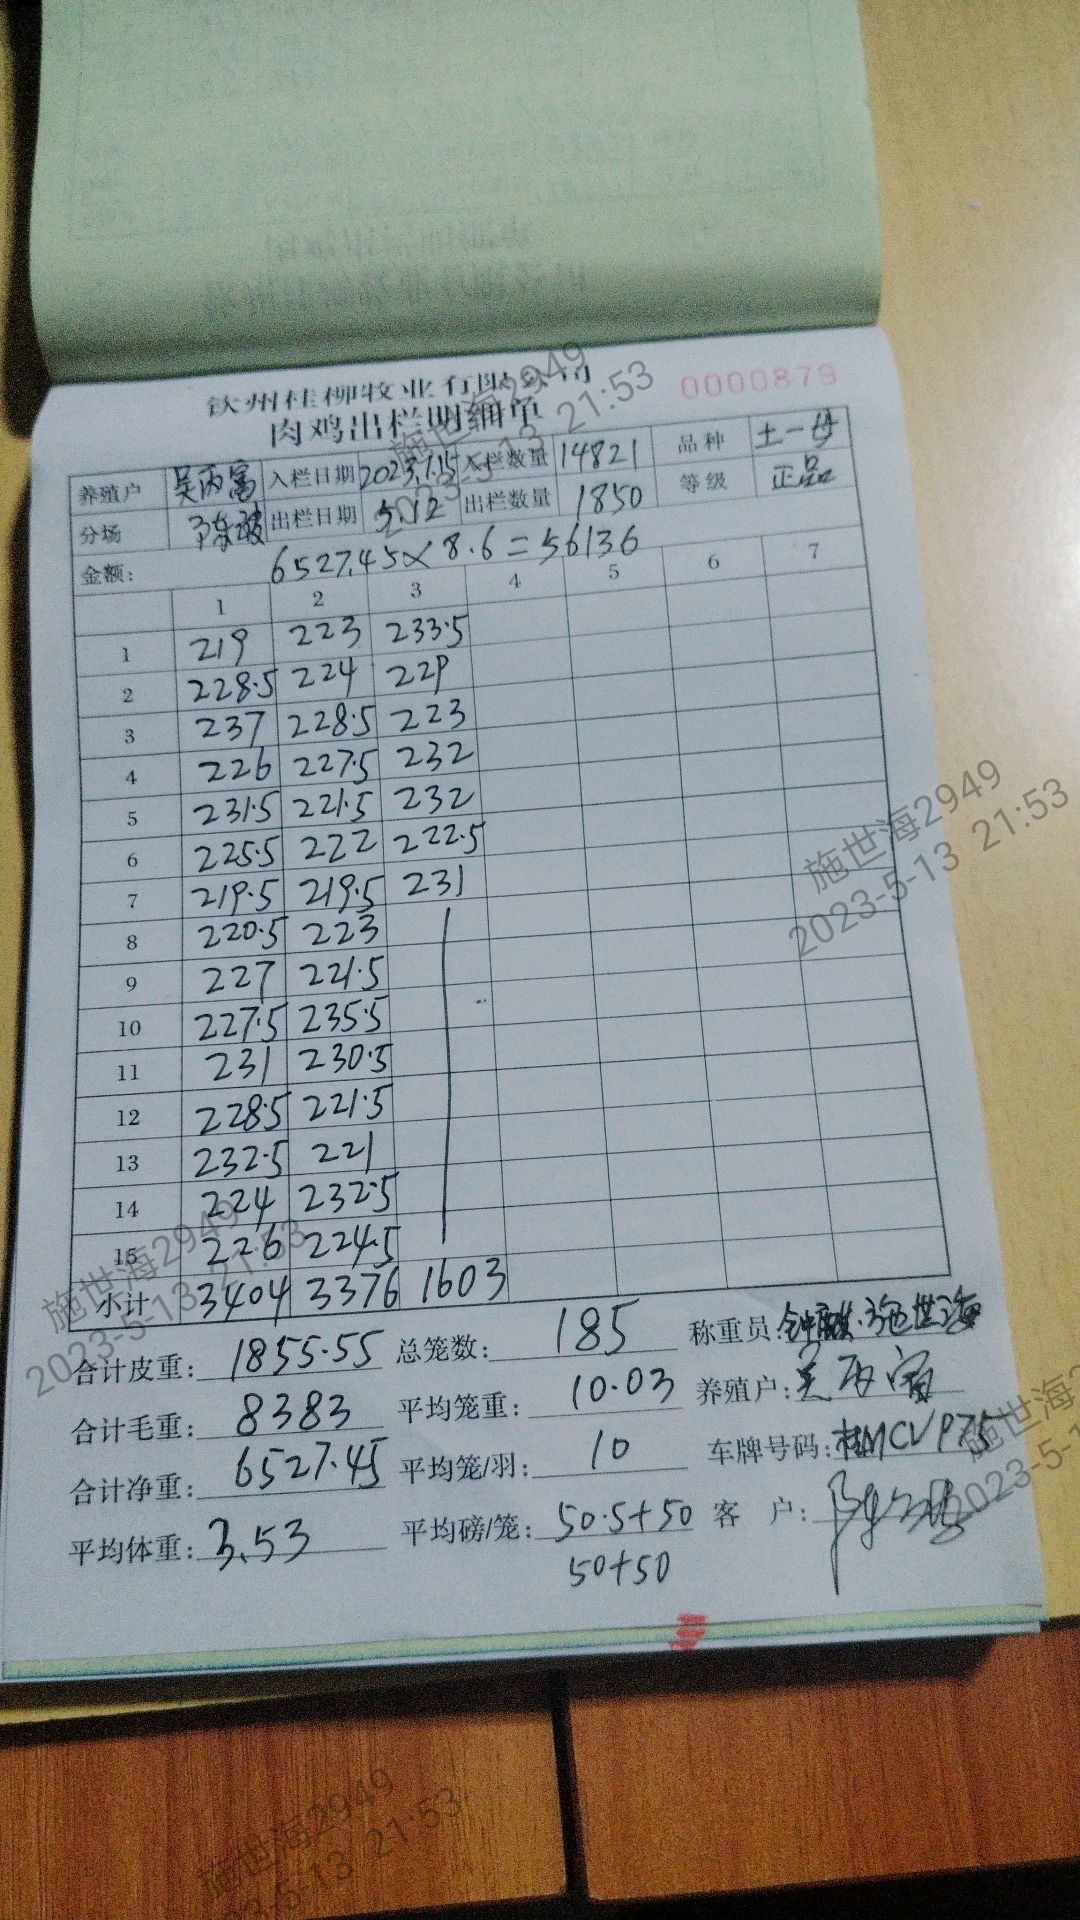 钦州桂柳牧业有限公司
0000879
肉鸡出栏明细单
养殖户 吴丙富 入栏日期 2023.1.15 入栏数量 14821 品种 土一母
分场 陈波 出栏日期 5.12 出栏数量 1850 等级 正品
金额: 6527.45×8.6=56136
1 2 3 4 5 6 7
1 219 223 233.5
2 228.5 224 229
3 237 228.5 223
4 226 227.5 232
5 231.5 221.5 232
6 225.5 222 222.5
7 219.5 219.5 231
8 220.5 223
9 227 221.5
10 227.5 235.5
11 231 230.5
12 228.5 221.5
13 232.5 221
14 224 232.5
15 226 224.5
小计 3404 3376 1603
合计皮重: 1855.55 总笼数: 185 称重员: 施世海
合计毛重: 8383 平均笼重: 10.03 养殖户: 吴丙富
合计净重: 6527.45 平均笼/羽: 10 车牌号码: 桂MCVP75
平均体重: 3.53 平均磅/笼: 50.5+50 客 户:
50+50
施世海2949
2023-5-13 21:53
施世海2949
2023-5-13 21:53
施世海2949
2023-5-13 21:53
施世海2
2023-5-1
施世海2949
3-5-13 21:53